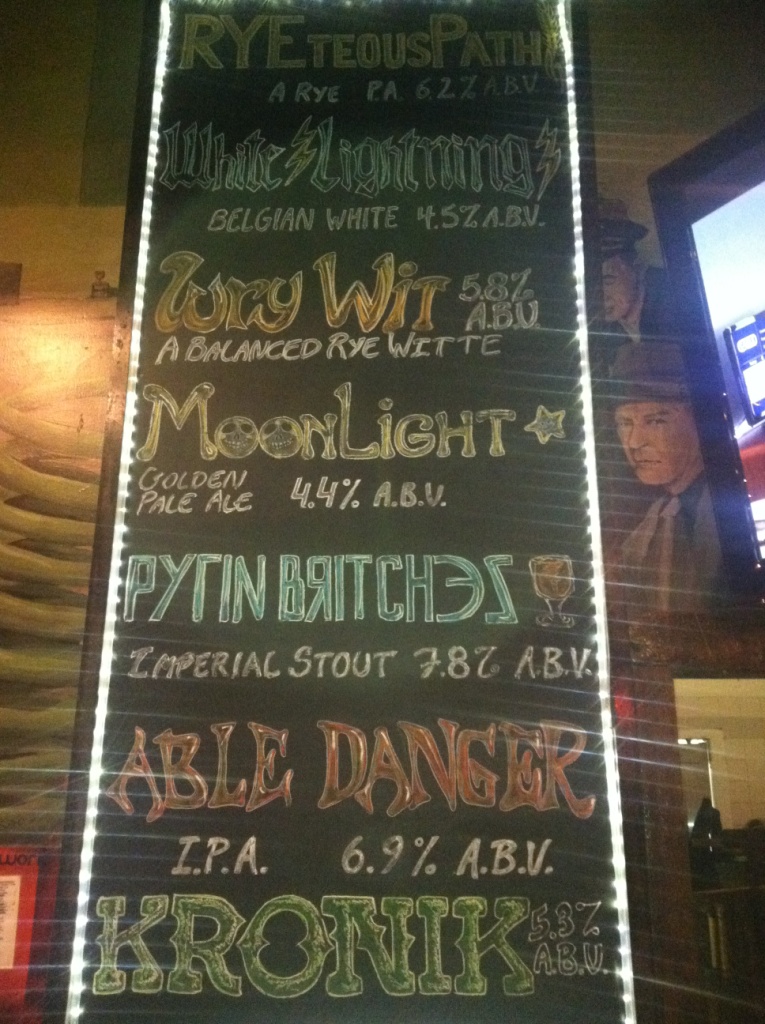 RYETEOUSPATH
A RYE PA 6.2% A.B.V.
White Lightning
BELGIAN WHITE 4.5% A.B.V.
Wry Wit 5.8%
A.B.V.
A BALANCED RYE WITTE
MOONLIGHT
GOLDEN
PALE ALE 4.4% A.B.V.
PYTIN BЯITCHƎS
IMPERIAL STOUT 7.8% A.B.V.
ABLE DANGER
I.P.A. 6.9% A.B.V.
KRONIK 5.3%
A.B.V.